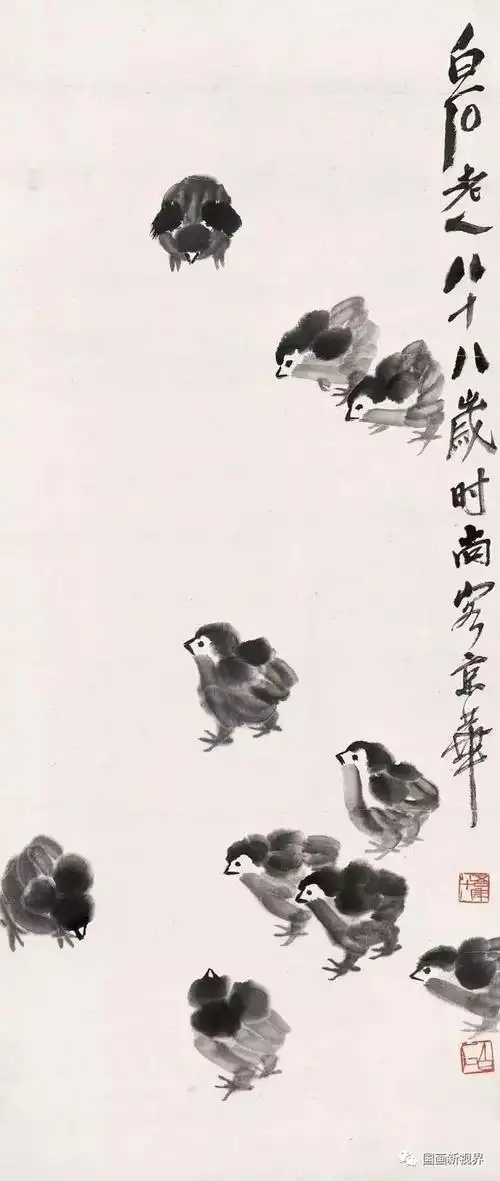 白石老人八十八歲时尚客京華
国画新视界